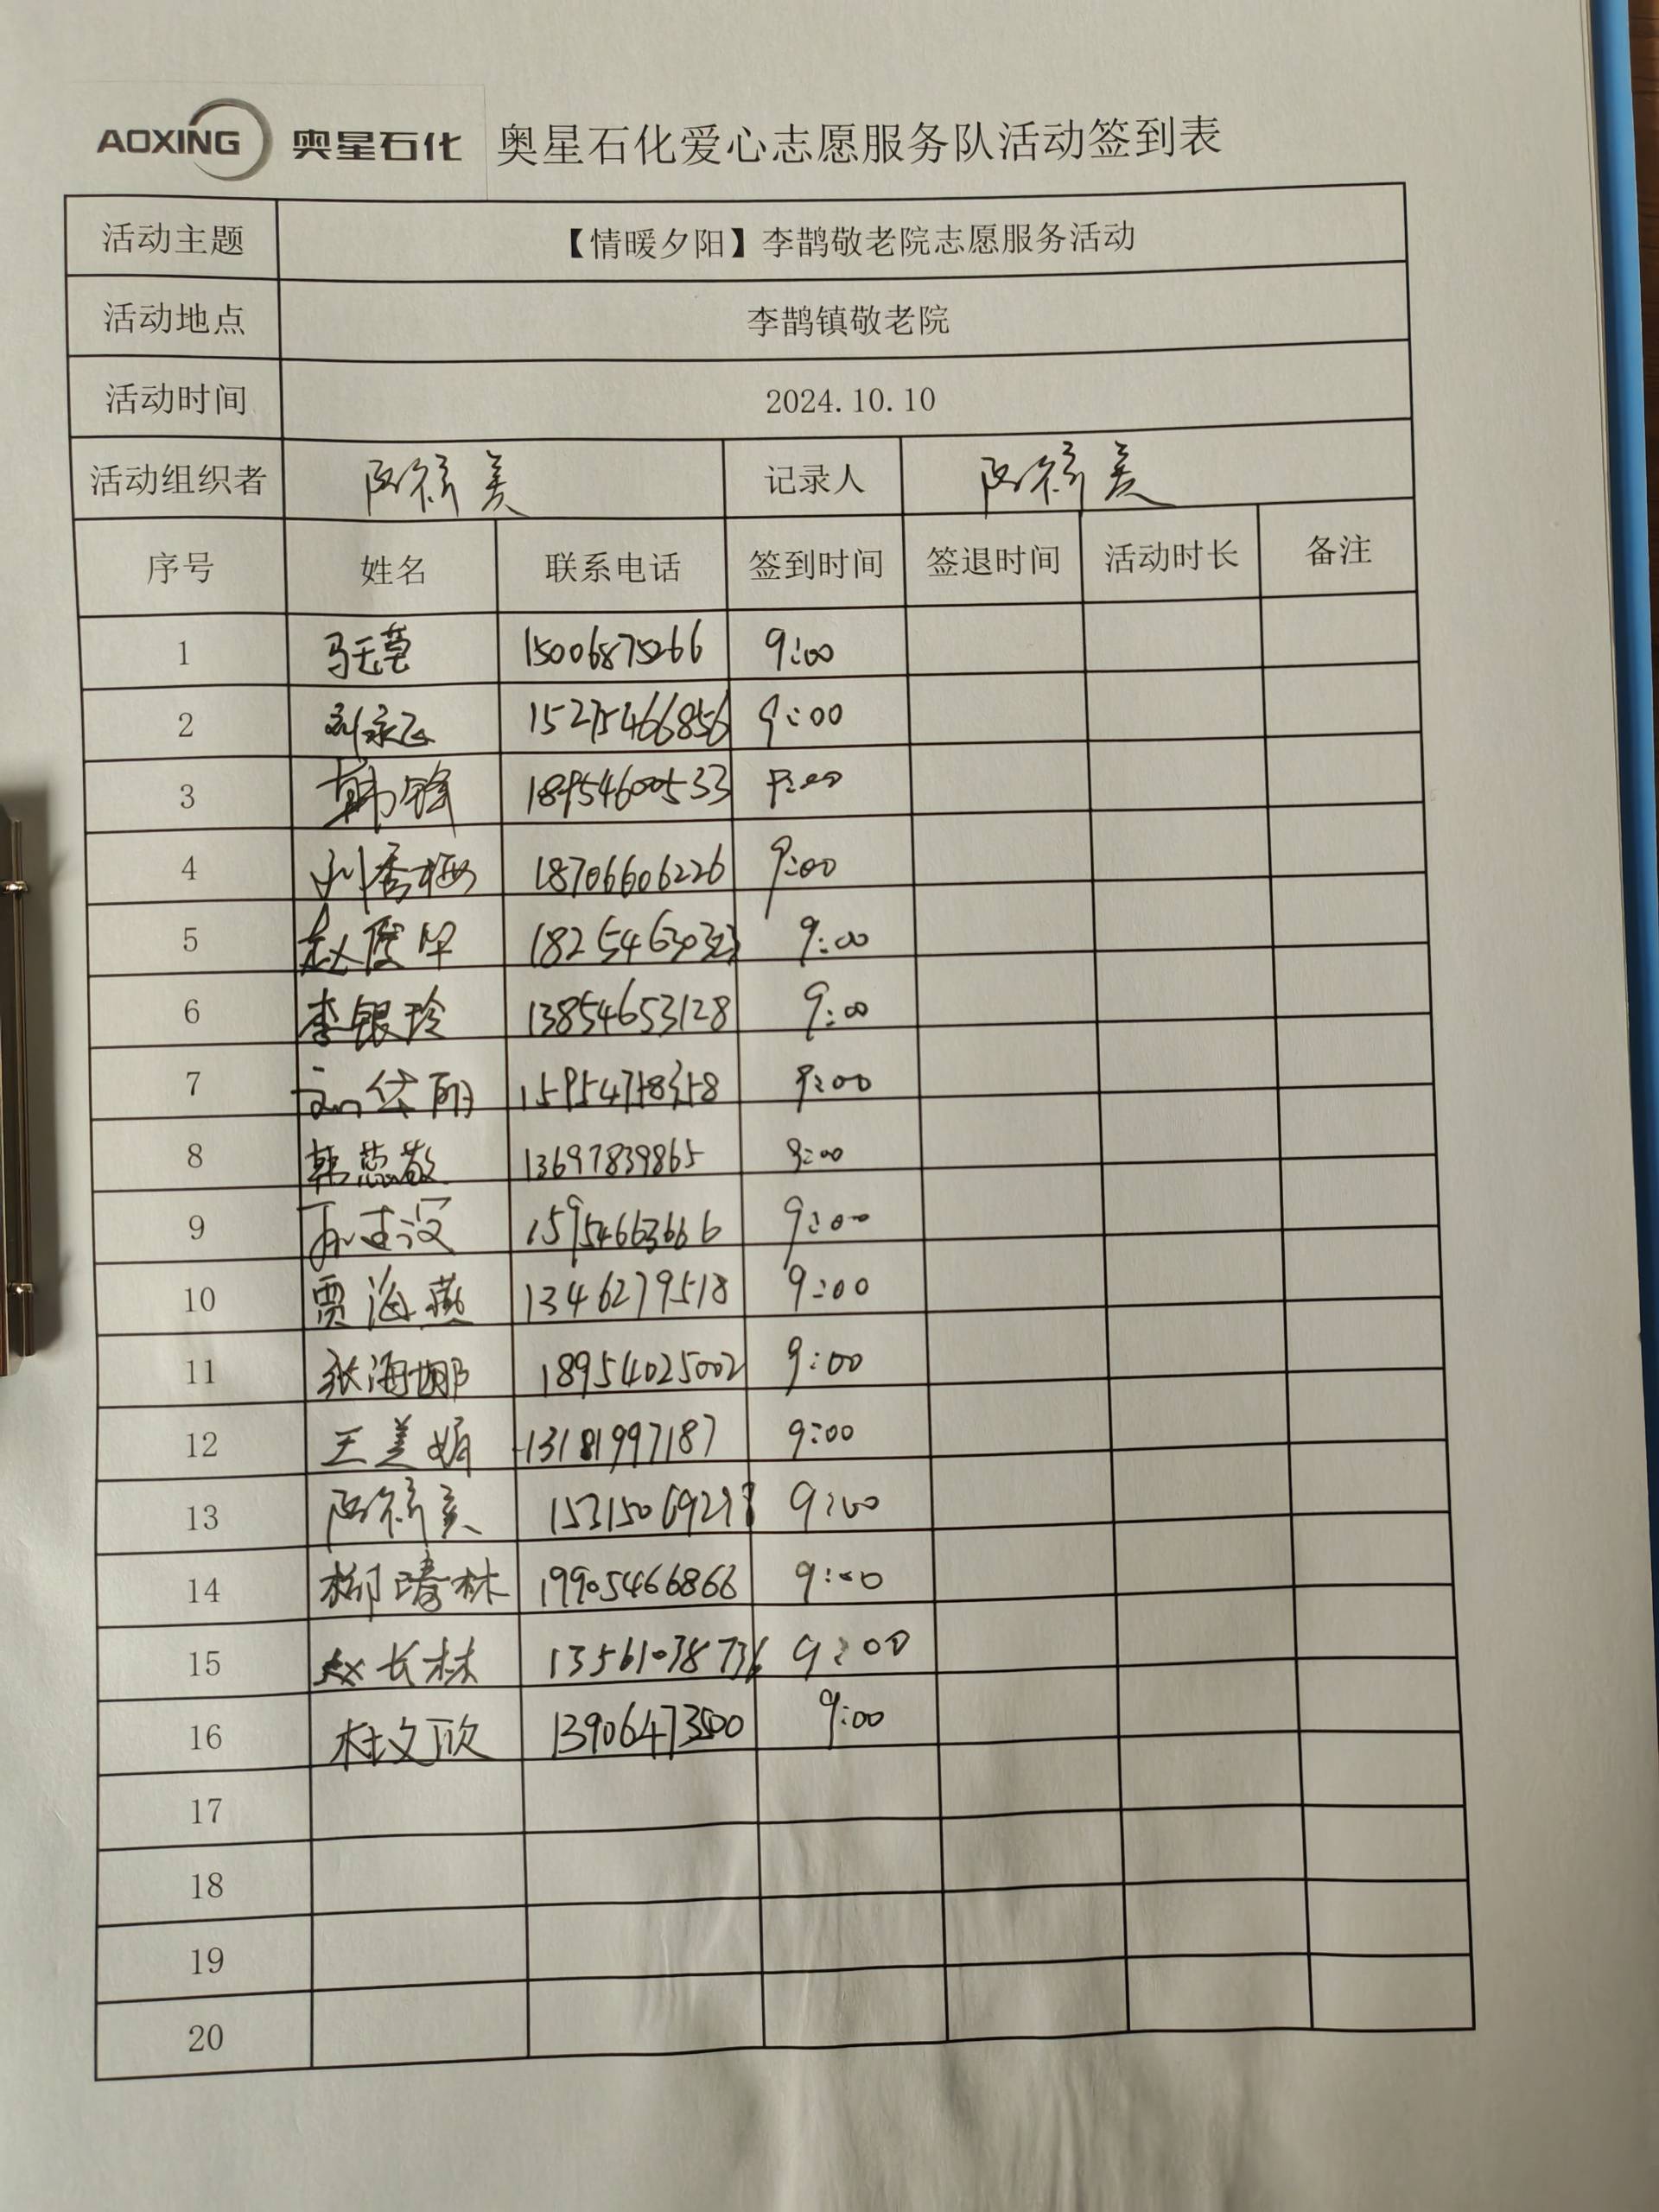 AOXING 奥星石化 奥星石化爱心志愿服务队活动签到表
活动主题 【情暖夕阳】李鹊敬老院志愿服务活动
活动地点 李鹊镇敬老院
活动时间 2024.10.10
活动组织者 美 记录人 美
序号 姓名 联系电话 签到时间 签退时间 活动时长 备注
1 15006875266 9:00
2 刘永飞 15275466856 9:00
3 韩锋 18954600533 9:00
4 刘秀梅 18706606226 9:00
5 赵 9:00
6 李银玲 13854653128 9:00
7 9:00
8 韩蕊敬 13697839865 9:00
9 孙建设 15954663666 9:00
10 贾海燕 1346279518 9:00
11 张海娜 18954025002 9:00
12 王美娟 13181997187 9:00
13 9:00
14 柳 林 19905466866 9:00
15 赵长林 13561038736 9:00
16 杜文欣 13906473500 9:00
17
18
19
20